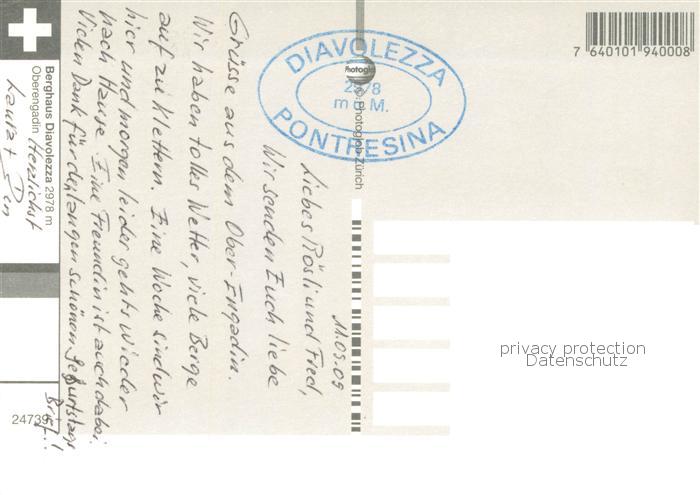 11.09.09
Liebes Rösli und Fred,
Wir senden Euch liebe
Grüsse aus dem Ober-Engadin.
Wir haben tolles Wetter, viele Berge
auf zu klettern. Eine Woche sind wir
hier und morgen leider gehts wieder
nach Hause. Eine Freundin ist auch dabei.
Vielen Dank für den langen schönen Geburtstags
Brief!!
Herzlichst
Laura +
Berghaus Diavolezza 2978 m
Oberengadin
24739
DIAVOLEZZA
2978
m ü. M.
PONTRESINA
Photoglob
© Photoglob Zürich
7 640101 940008
privacy protection
Datenschutz